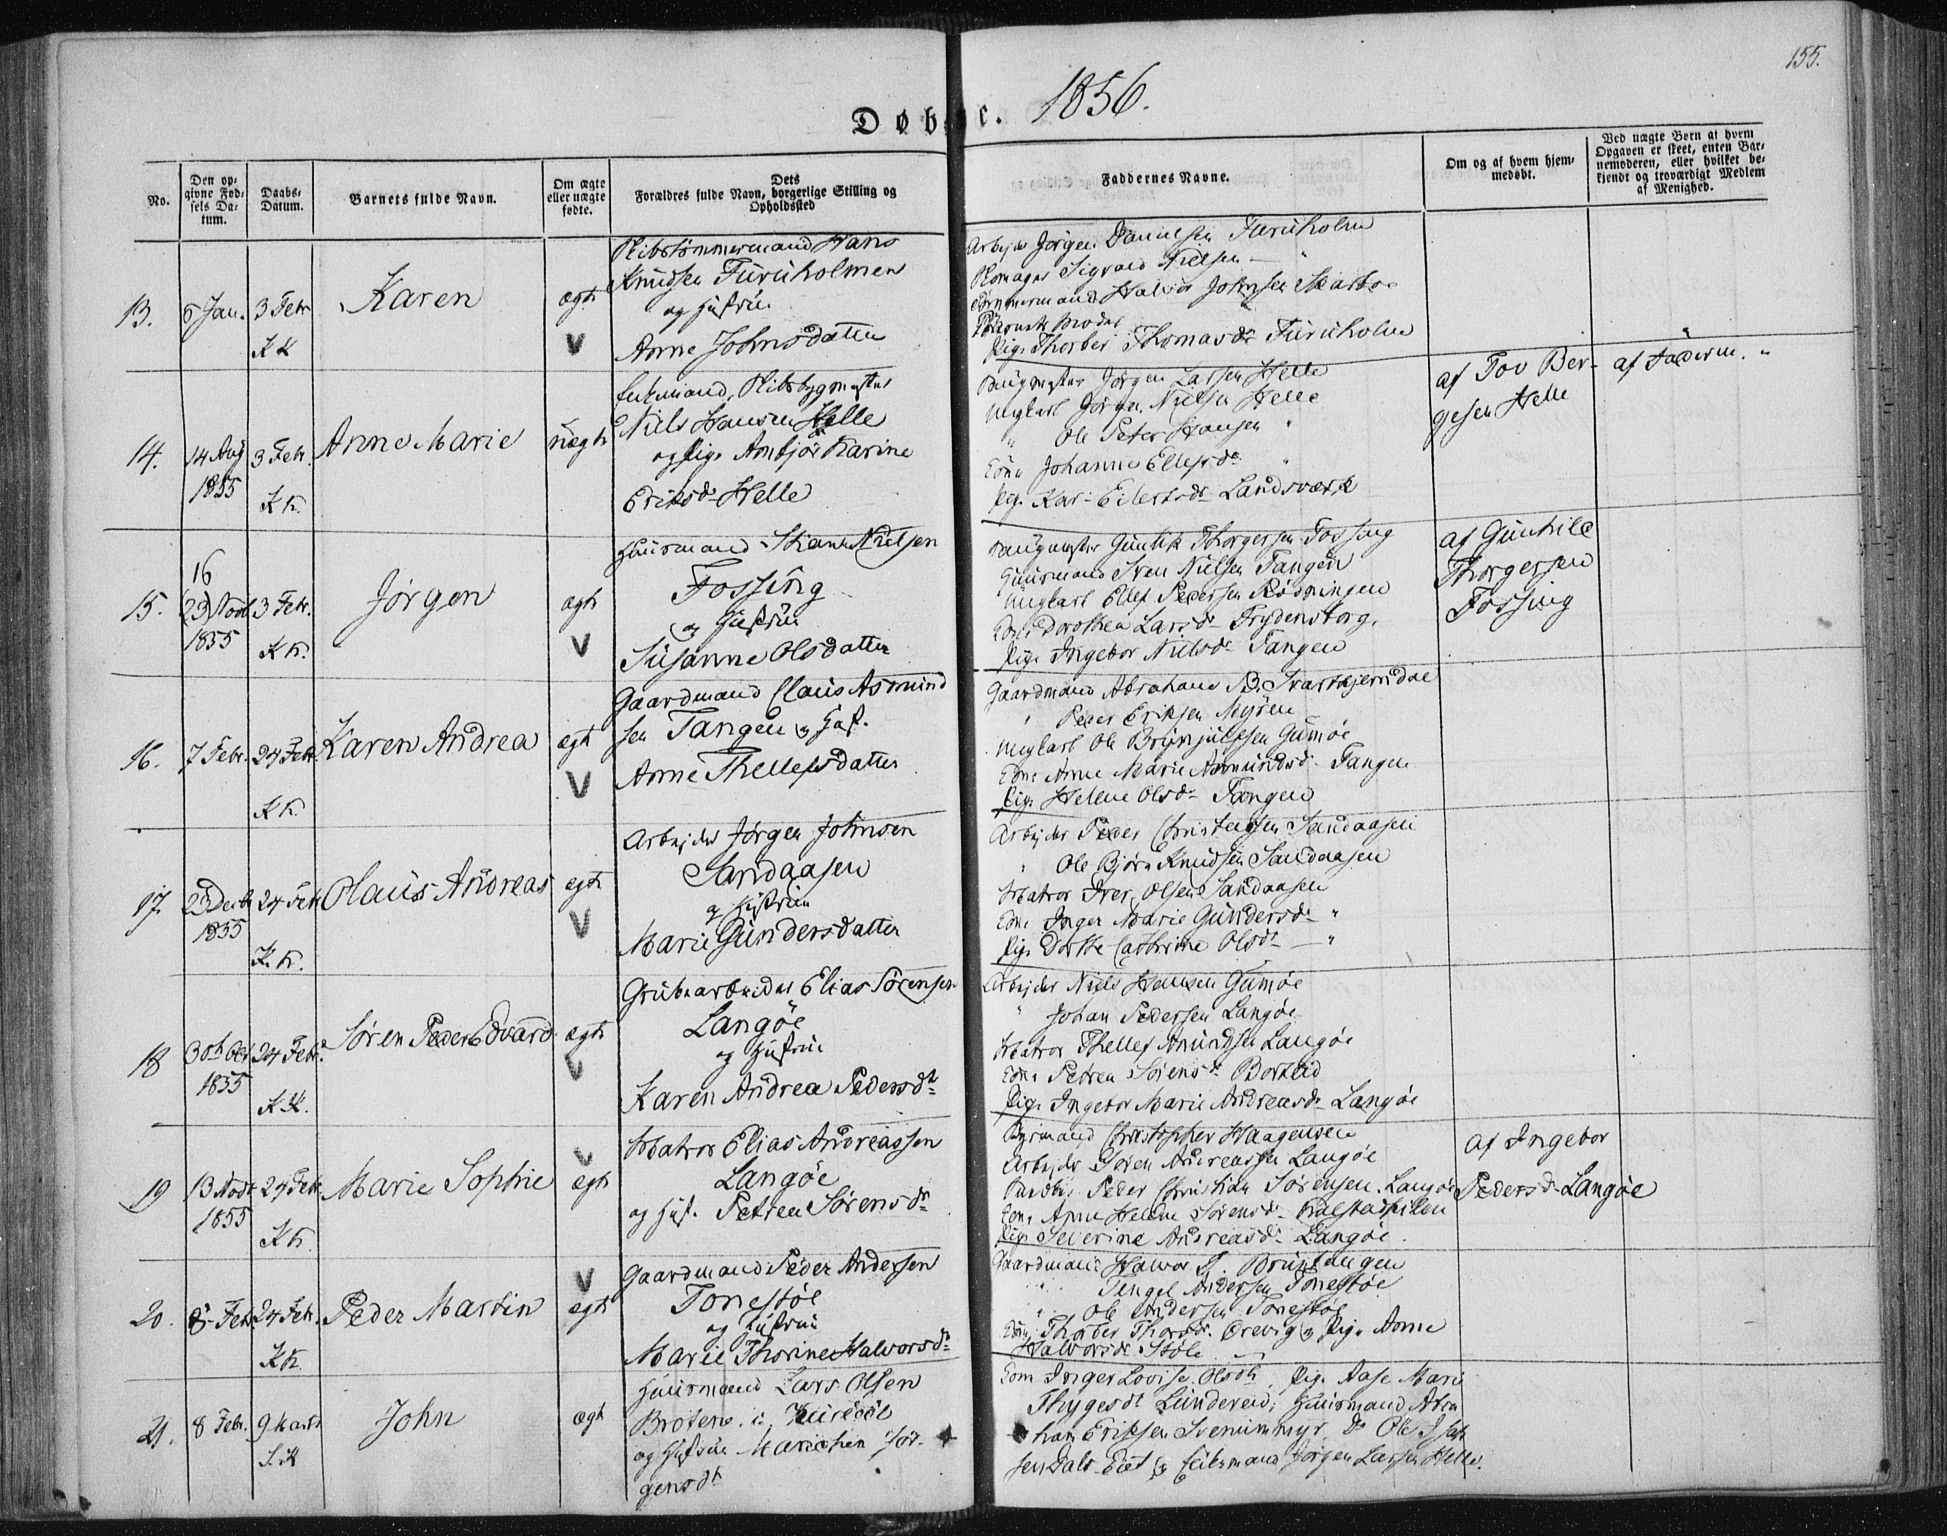 155.
Døbte. 1856.
No.
Den opgivne Fødsels Datum.
Daabs-Datum.
Barnets fulde Navn.
Om ægte eller nægte fødte.
Dets Forældres fulde Navn, borgerlige Stilling og Opholdssted
Faddernes Navne.
Om og af hvem hjemmedøbt.
Ved nægte Børn at hvem Opgaven er skeet, enten Barnemoderen, eller hvilket bekjendt og troværdigt Medlem af Menighed.
13.
6 Jan.
3 Febr
KK
Karen
ægte
Skibstømmermand Hans
Knudsen Furuholmen
og Hustru
Anne Johnsdatter
Arbejder Jørgen Danielsen Furuholm
Sigvard Nielsen
Tømmermand Halvor Johnsen Skarboe
Barnets Moder
Pige Thorber Thomasdr Furuholm
14.
14 Aug
1855
3 Febr.
KK.
Anne Marie
uægte
Enkemand, Skibsbygmester
Niels Hansen Helle
og Pige Anbjør Karine
Eriksdr Helle
Bygmester Jørgen Larsen Helle
Ungkarl Jørgen Nielsen Helle
" Ole Peter Hansen "
Kone Johanne Ellefsdr
Pige Kari Eilertsdr Landsværk
af Tov Ber-
gesen Helle
af Faderen. "
15.
16
(23) Novb
1855
3 Febr.
KK.
Jørgen
ægte
Huusmand Nielsen
Fossing
og Hustru
Susanne Olsdatter
Bygmester Guntik Thorgersen Fossing
Huusmand Sven Nielsen Tangen
Ungkarl Ellef Pedersen Rødningen
Kone Dorothea Larsdr Frydensborg.
Pige Ingebor Nielsdr Tangen
af Gunhild
Thorgersen
Fossing
16.
7 Febr.
24 Febr.
KK.
Karen Andrea
ægt
Gaardmand Claus Asmund
sen Tangen og Hust.
Anne Thellefsdatter
Gaardmand Abraham B. Svartkjerrsdal
" Peder Eriksen Myren
Ungkarl Ole Brynjulfsen Gumøe
Kone Anne Marie Asmundsdr Tangen
Pige Helene Olsdr Tangen
17.
23 Decb
1855
24 Feb
K.K.
Olaus Andreas
ægte
Arbejder Jørgen Johnsen
Sandaasen
og Hustru
Marie Gundersdatter
Arbejder Peder Christensen Sandaasen
" Ole Bjørn Knudsen Sandaasen
Matros Iver Olsen Sandaasen
Kone Inger Marie Gundersdr "
Pige Dorthe Cathrine Olsdr — "
18
30 Octbr
1855
24 Febr.
KK.
Søren Peder Edvard
ægte
Grubearbeider Elias Sørensen
Langøe
og Hustru
Karen Andrea Pedersdr
Arbejder Niels Hansen Gumøe
" Johan Pedersen Langøe
Matros Thellef Amundsen Langøe
Kone Petrea Sørensdr Borteid
Pige Ingebor Marie Andreasdr Langøe
19
13 Novb
1855
24 Feb.
KK.
Marie Sophie
ægt
Matros Elias Andreassen
Langøe
og Hust. Petrea Sørensdr
Christopher Haagensen
Arbejder Søren Andreassen Langøe
Peder Christian Sørensen Langøe
Kone Anne Helene Sørensdr Kalstadkilen
Pige Severine Andreasdr Langøe.
af Ingebor
Pedersdr Langøe
20.
8 Feb
24 Feb.
KK.
Peder Martin
ægte
Gaardmand Peder Andersen
Tonestøl
og Hustru
Marie Thorine Halvorsdr
Gaardmand Halvor J. Bruntangen
" Tengel Andersen Tonestøl
" Ole Andersen Tonestøl
Kone Thorber Thorsdr Ørevig og Pige Anne
Halvorsdr Støle
21.
8 Febr.
9 Marts
S.K
John
ægt
Huusmand Lars Olsen
Broten i
og Hustru Marichen Jør-
gensdt
Kone Inger Lovise Olsdtr, Pige Aase Marie
Thygesdt Lundereid, Huusmand Abra
ham Eriksen Svenummyr, Do Ole Isak
sen Dals-Eiet og Enkemand Jørgen Larsen Helle.